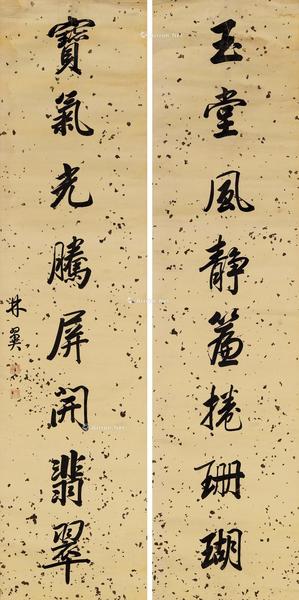 玉堂風静簾捲珊瑚
寶氣光騰屏開翡翠
林翼